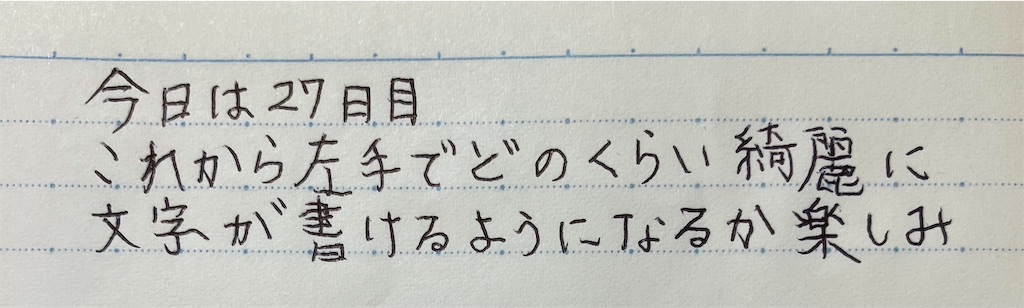 今日は27日目
これから左手でどのくらい綺麗に
文字が書けるようになるか楽しみ